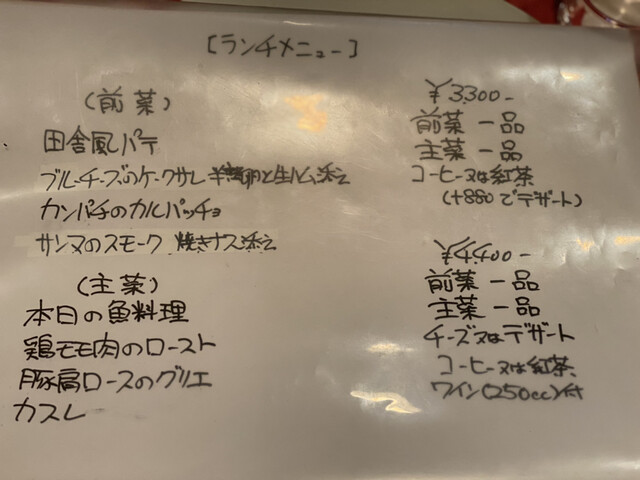 [ランチメニュー]
(前菜)
田舎風パテ
ブルーチーズのケークサレ 半熟卵と生ハム添え
カンパチのカルパッチョ
サンマのスモーク 焼きナス添え
(主菜)
本日の魚料理
鶏モモ肉のロースト
豚肩ロースのグリエ
カスレ
¥3,300-
前菜 一品
主菜 一品
コーヒー又は紅茶
(+880でデザート)
¥4,400-
前菜 一品
主菜 一品
チーズ又はデザート
コーヒー又は紅茶、
ワイン(250cc)付